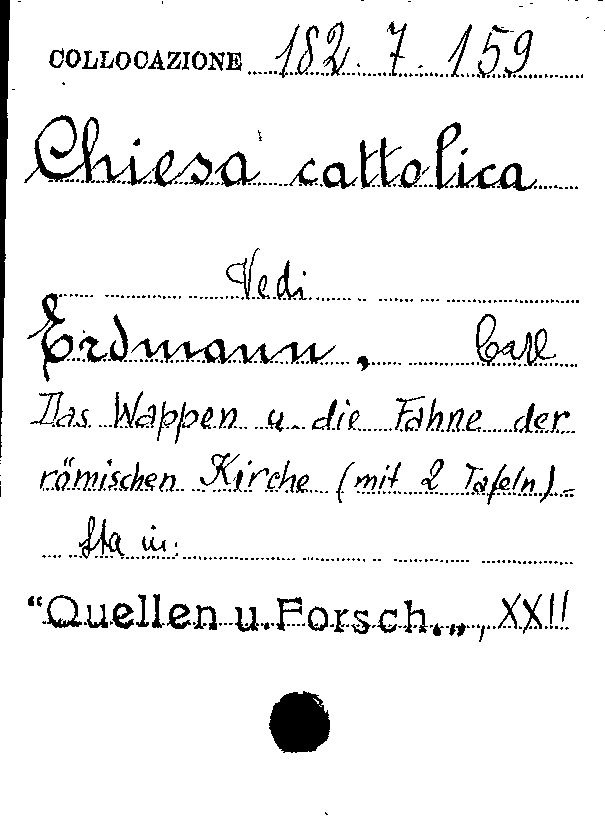 COLLOCAZIONE 182.7.159
Chiesa cattolica
Vedi
Erdmann, Carl
Das Wappen u. die Fahne der
römischen Kirche (mit 2 Tafeln) -
Sta in:
"Quellen u. Forsch.„, XXII